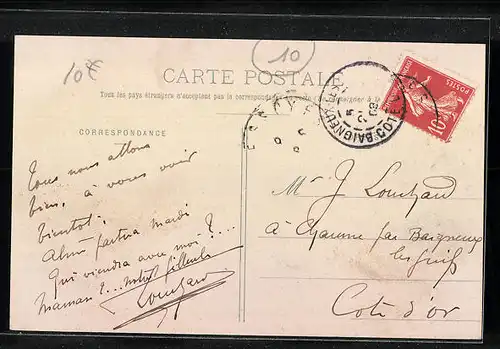 10€
10
CARTE POSTALE
Tous les pays étrangers n'acceptent pas la correspondance
CORRESPONDANCE
Tous nous allons
bien, à vous voir
bientôt.
partira mardi
Qui viendra avec moi ?...
Maman ?...
Louchard
BAIGNEUX
POSTES
10
Mr J. Louchard
à par Baigneux
les Juifs
Cote d'or